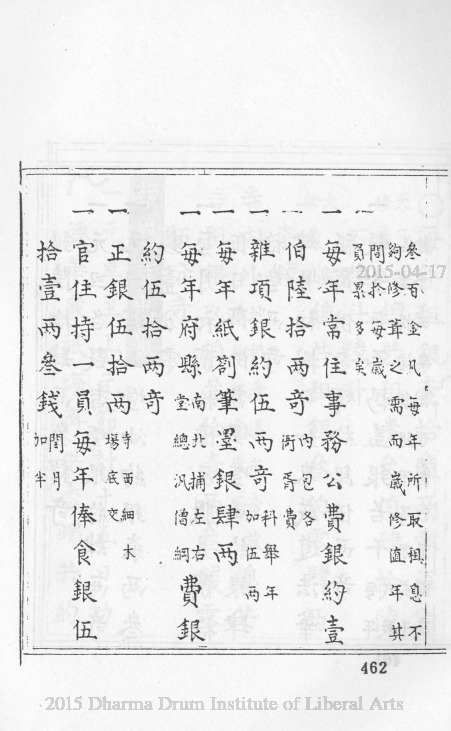 叁百金凡每年所取租息不
夠修葺之需而歲修值年其
間於每歲
員累多矣
一每年常住事務公費銀約壹
伯陸拾兩竒內包各衙胥費
一雜項銀約伍兩竒科舉年加伍兩
一每年紙劄筆墨銀肆兩
一每年府縣南北捕左右堂總汛僧綱費銀
約伍拾兩竒
一正銀伍拾兩寺西細木場底交
一官住持一員每年俸食銀伍
拾壹兩叁錢閏月加半
462
2015-04-17
2015 Dharma Drum Institute of Liberal Arts